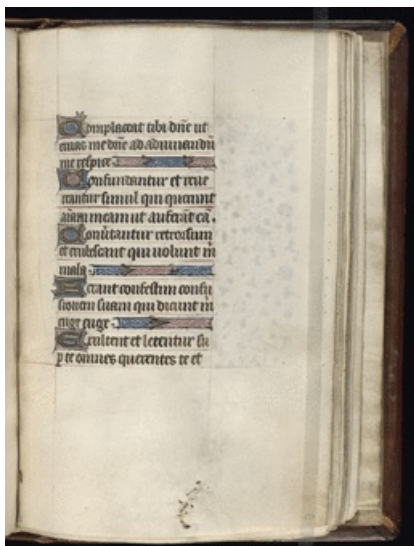 Complaceat tibi dñe ut
eruas me dñe ad adiuuandũ
me respice
Confundantur et reue
reantur simul qui querunt
aĩam meam ut auferãt eã.
Conũtantur retrorsum
et erubescant qui uolunt m̃
mala
Ferant confestim confu
sionem suam qui dicunt m̃
euge euge
Exultent et letentur su
p te omnes querentes te et